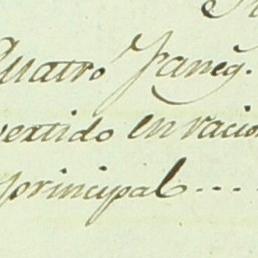 Quatro Faneg.
vertido en racio
principal....